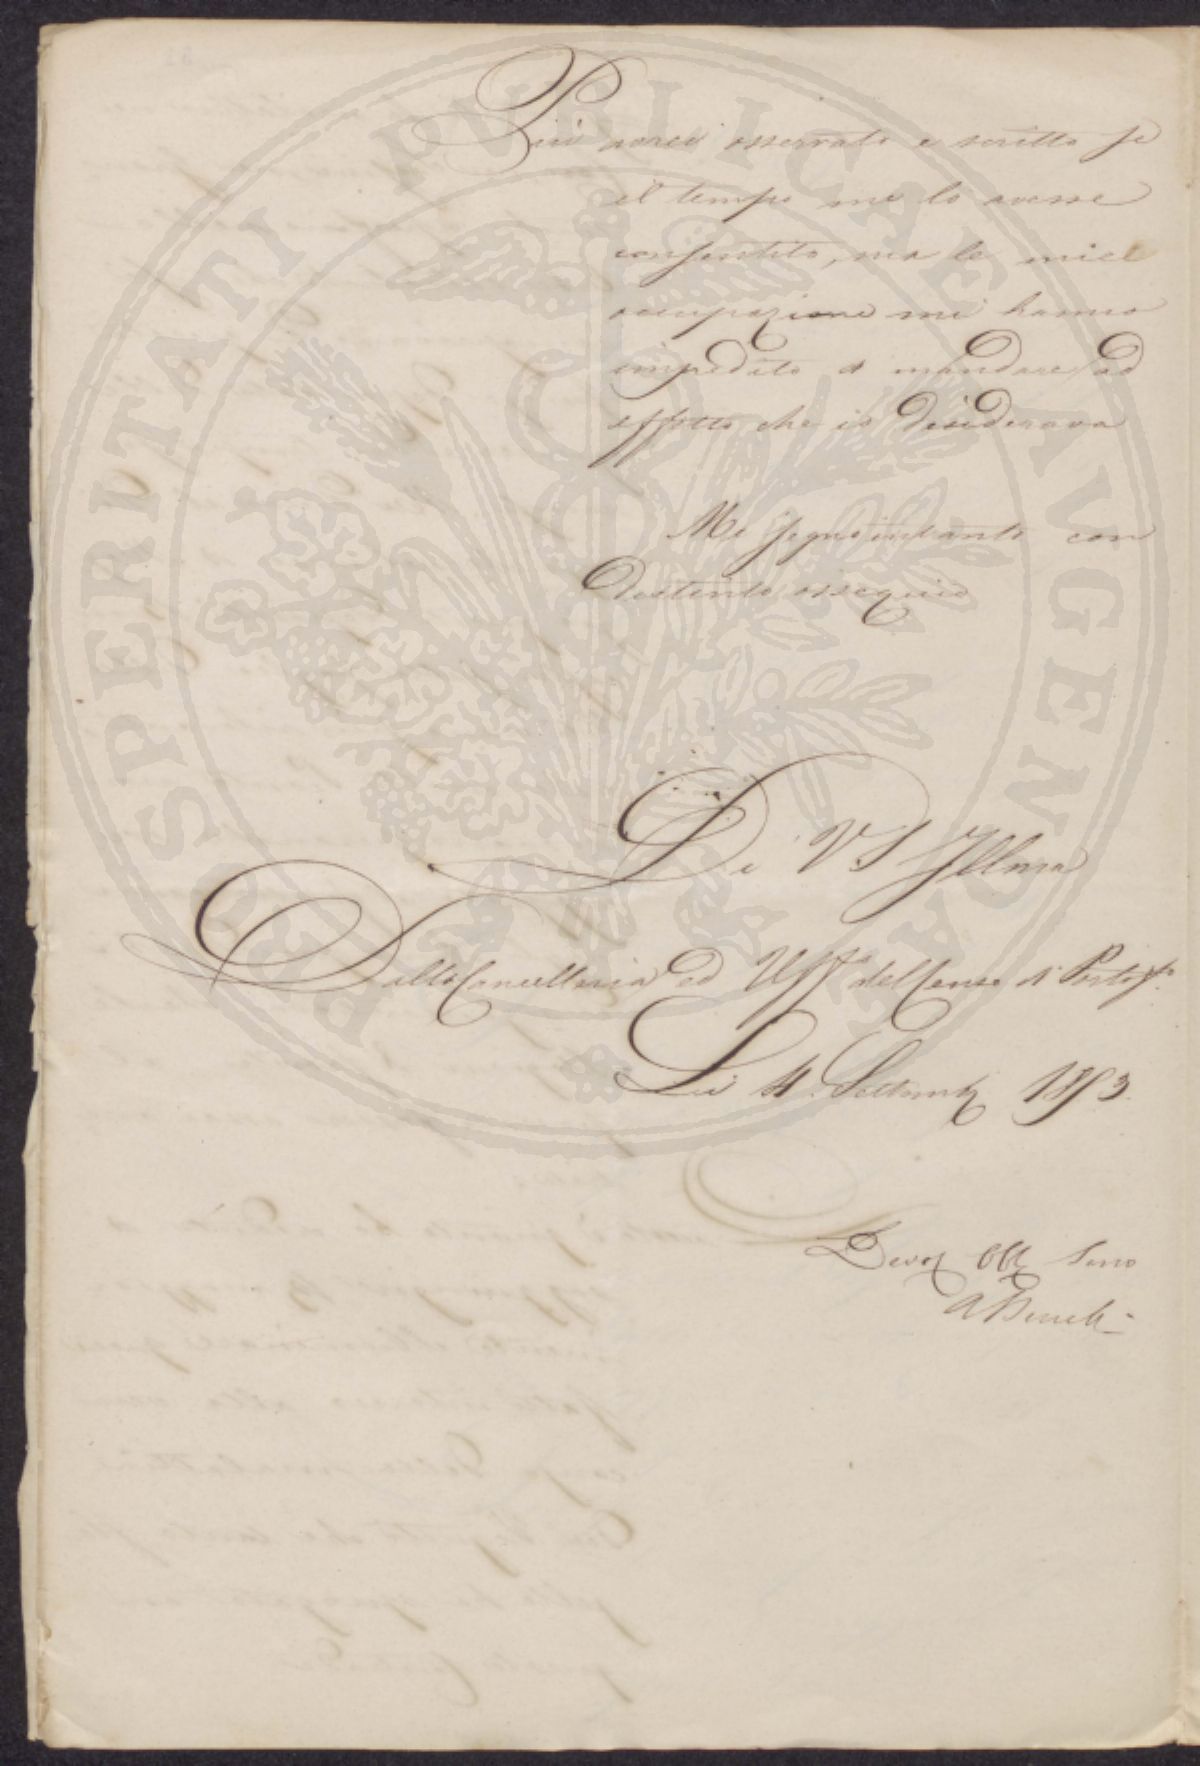 Più avrei osservato e scritto se
il tempo me lo avesse
consentito, ma le miei
occupazione mi hanno
impedito di mandare ad
effetto che io desiderava
Mi segno intanto con
distinto ossequio
Di V. S. Illma
Dalla Cancelleria ed Uffo del Censo di
Li 4 Settemb 1853
Devoz Obb Servo
PROSPERITATI PUBLICAE AVGENDAE